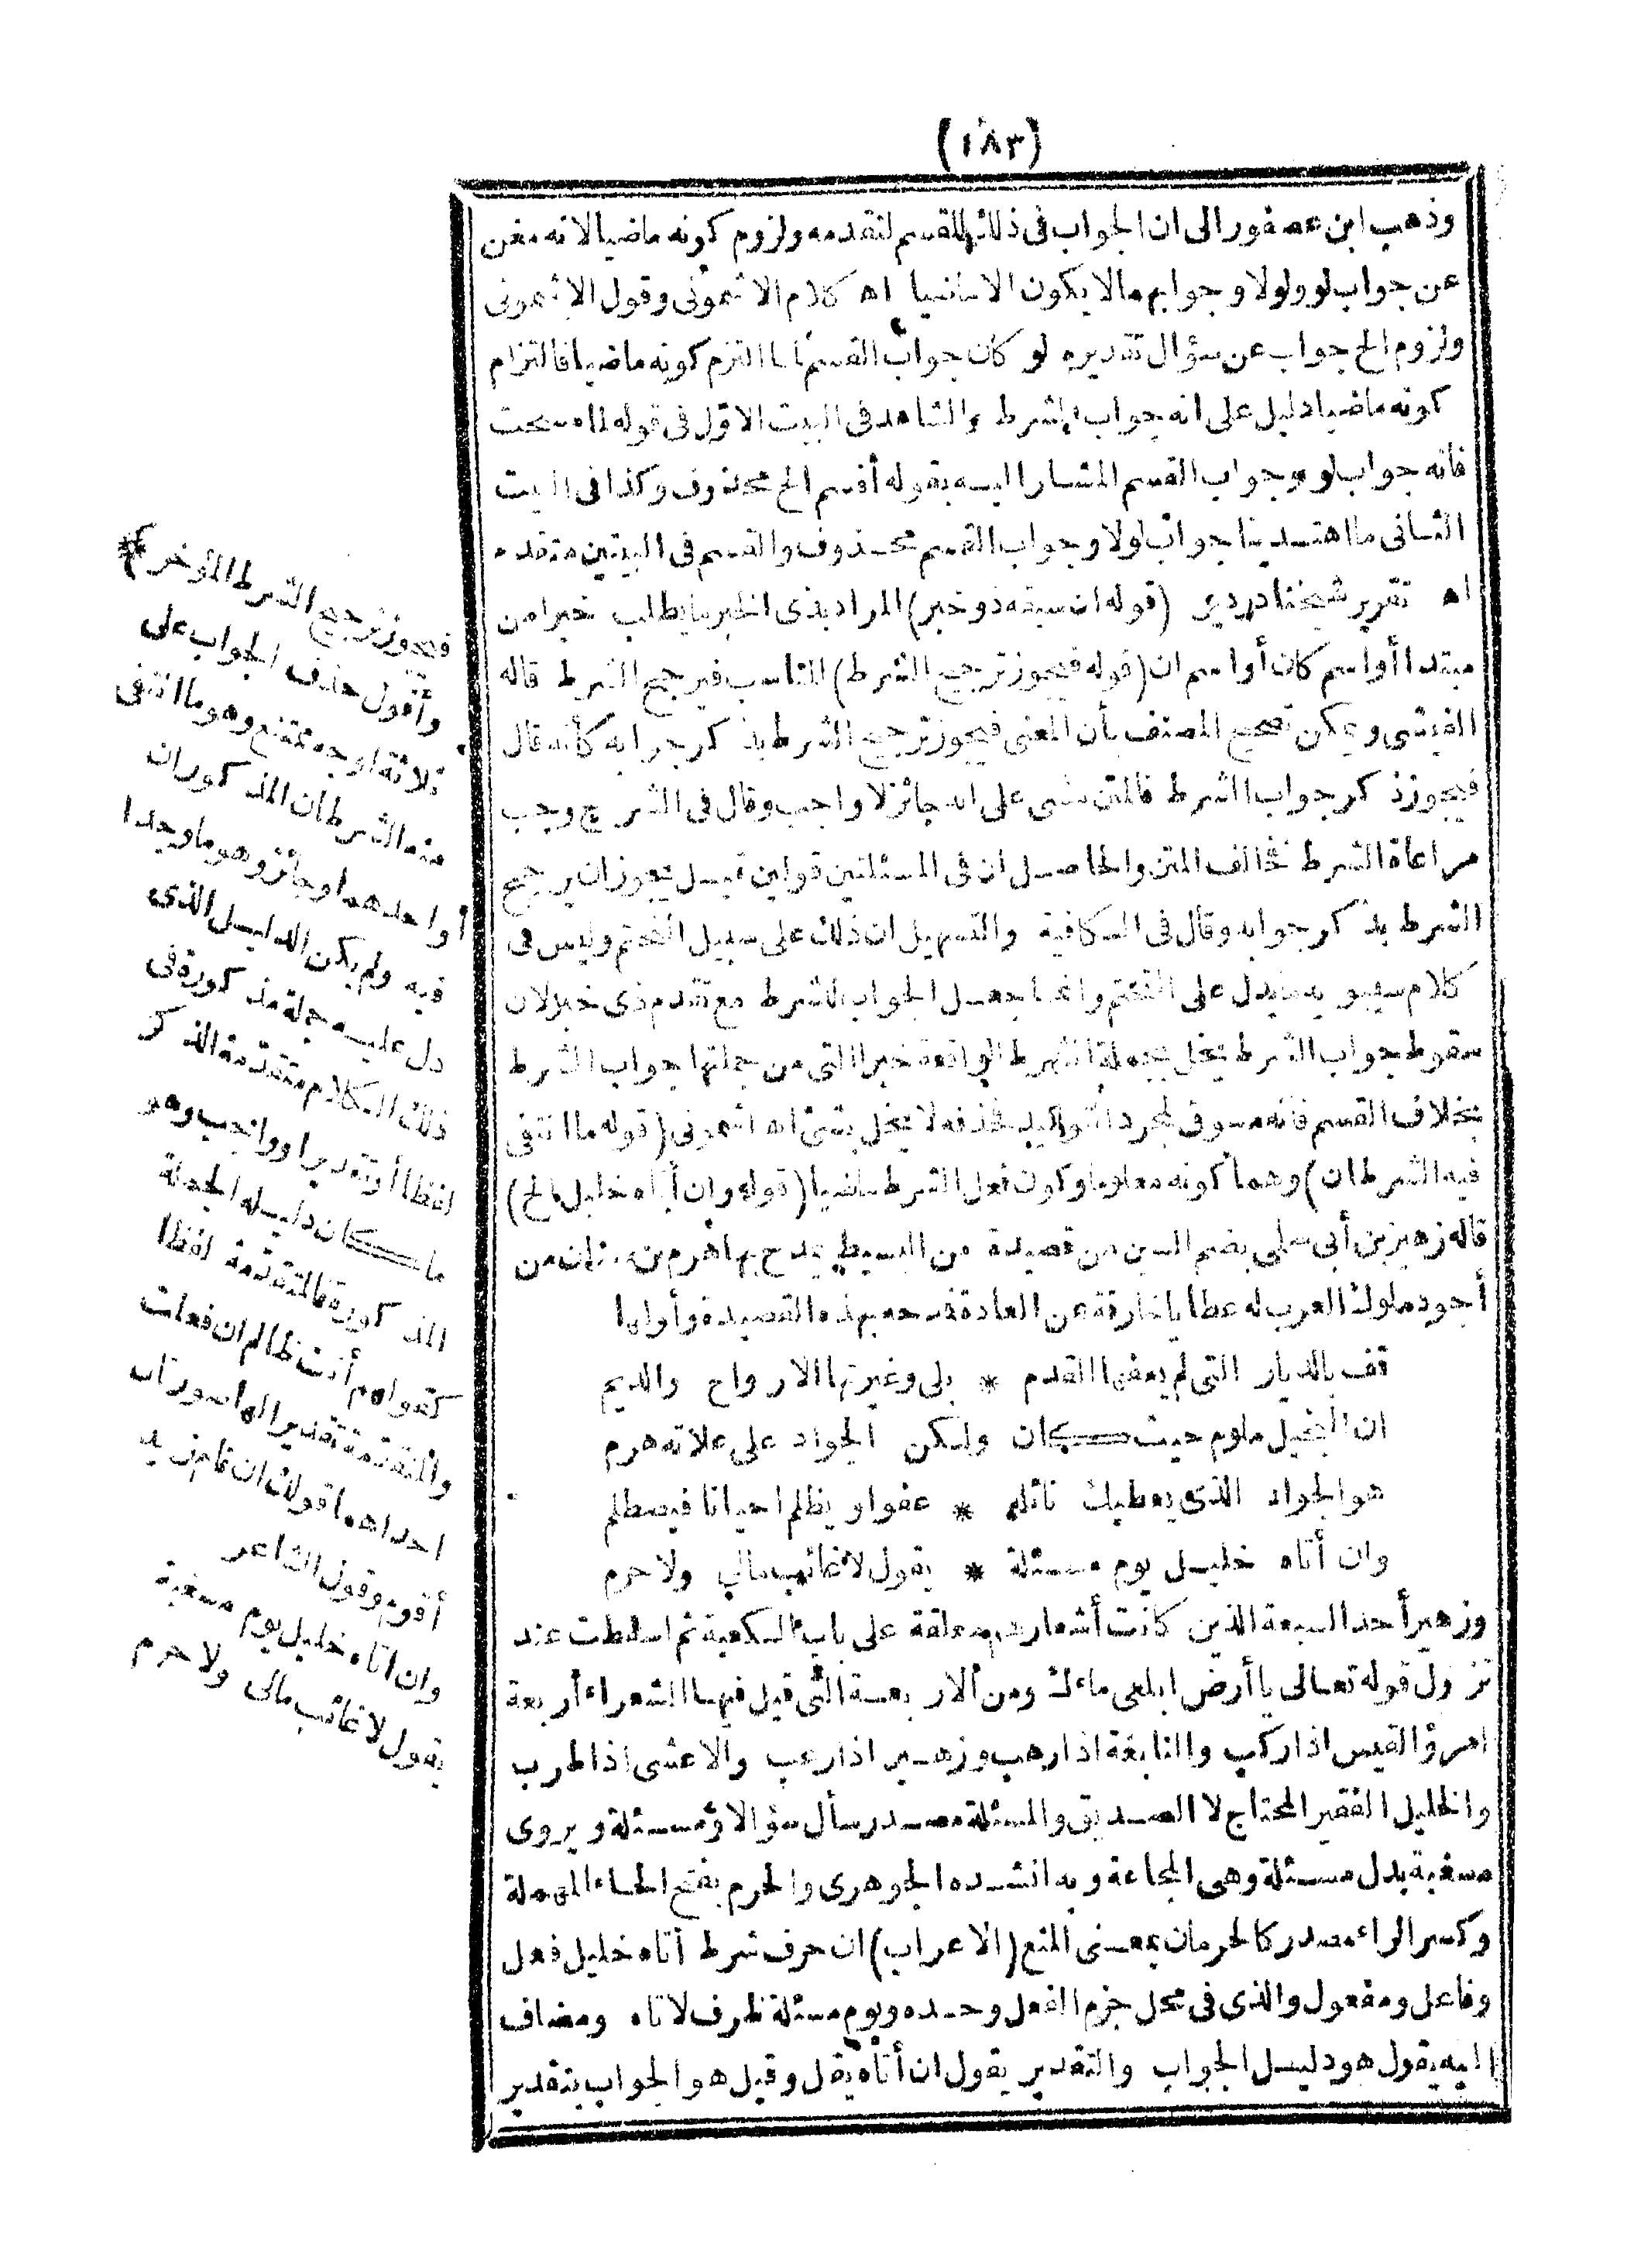 (١٨٣)
وذهب ابن عصفور الى ان الجواب فى ذلك للقسم لتقدمه ولزوم كونه ماضيا لانه مغن
عن جواب لو ولولا وجوابهما لا يكون الا ماضيا اه كلام الاشمونى وقول الاشمونى
ولزوم الخ جواب عن سؤال تقديره لو كان جواب القسم لما التزم كونه ماضيا فالتزام
كونه ماضيا دليل على انه جواب الشرط والشاهد فى البيت الاول فى قوله لما سحت
فانه جواب لو وجواب القسم المشار اليه بقوله أقسم الخ محذوف وكذا فى البيت
الثانى ما اهتدينا جواب لولا وجواب القسم محذوف والقسم فى البيتين متقدم
اه تقرير شيخنا دردير (قوله ان سبقه ذو خبر) المراد بذى الخبر ما يطلب خبرا من
مبتدا أو اسم كان أو اسم ان (قوله فيجوز ترجيح الشرط) المناسب فيرجح الشرط قاله
الفيشى ويمكن تصحيح المصنف بأن المعنى فيجوز ترجيح الشرط بذكر جوابه كأنه قال
فيجوز ذكر جواب الشرط فالمتن مشى على انه جائز لا واجب وقال فى الشرح وجب
مراعاة الشرط فخالف المتن والحاصل ان فى المسئلتين قولين قيل يجوز ان يرجح
الشرط بذكر جوابه وقال فى الكافية والتسهيل ان ذلك على سبيل التحتم وليس فى
كلام سيبويه ما يدل على التحتم وانما جعل الجواب للشرط مع تقدم ذى خبر لان
سقوط جواب الشرط يخل بجملة الشرط الواقعة خبرا التى من جملتها جواب الشرط
بخلاف القسم فانه مسوق لمجرد التوكيد فحذفه لا يخل بشئ اه اشمونى (قوله ما انتفى
فيه الشرطان) وهما كونه معلوما وكون فعل الشرط ماضيا (قوله وان أتاه خليل الخ)
قاله زهير بن أبى سلمى بضم السين من قصيدة من البسيط يمدح بها هرم بن سنان من
أجود ملوك العرب له عطايا خارقة عن العادة فمدحه بهذه القصيدة وأولها
قف بالديار التى لم يعفها القدم * بلى وغيرتها الارواح والديم
ان البخيل ملوم حيث كان ولكن الجواد على علاته هرم
هو الجواد الذى يعطيك نائله * عفوا ويظلم احيانا فيصطلم
وان أتاه خليل يوم مسئلة * يقول لا غائب مالى ولا حرم
وزهير أحد السبعة الذين كانت أشعارهم معلقة على باب الكعبة ثم اسقطت عند
نزول قوله تعالى يا أرض ابلعى ماءك ومن الاربعة التى قيل فيها الشعراء أربعة
امرؤ القيس اذا ركب والنابغة اذا رهب وزهير اذا رغب والاعشى اذا طرب
والخليل الفقير المحتاج لا الصديق والمسئلة مصدر سأل سؤالا ومسئلة ويروى
مسغبة بدل مسئلة وهى المجاعة وبه انشده الجوهرى والحرم بفتح الحاء المهملة
وكسر الراء مصدر كالحرمان بمعنى المنع (الاعراب) ان حرف شرط أتاه خليل فعل
وفاعل ومفعول والذى فى محل جزم الفعل وحده ويوم مسئلة ظرف لاتاه ومضاف
اليه يقول هو دليل الجواب والتقدير يقول ان أتاه يقل وقيل هو الجواب بتقدير
فيجوز ترجيح الشرط المؤخر) *
وأقول حذف الجواب على
ثلاثة اوجه ممتنع وهو ما انتفى
منه الشرطان المذكوران
أو احدهما وجائز وهو ما وجدا
فيه ولم يكن الدليل الذى
دل عليه جملة مذكورة فى
ذلك الكلام متقدمة الذكر
لفظا أو تقديرا وواجب وهو
ما كان دليله الجملة
المذكورة فالمتقدمة لفظا
كقولهم أنت ظالم ان فعلت
والمتقدمة تقديرا لها صورتان
احداهما قولك ان قام زيد
أقوم وقول الشاعر
وان اتاه خليل يوم مسغبة
يقول لا غائب مالى ولا حرم